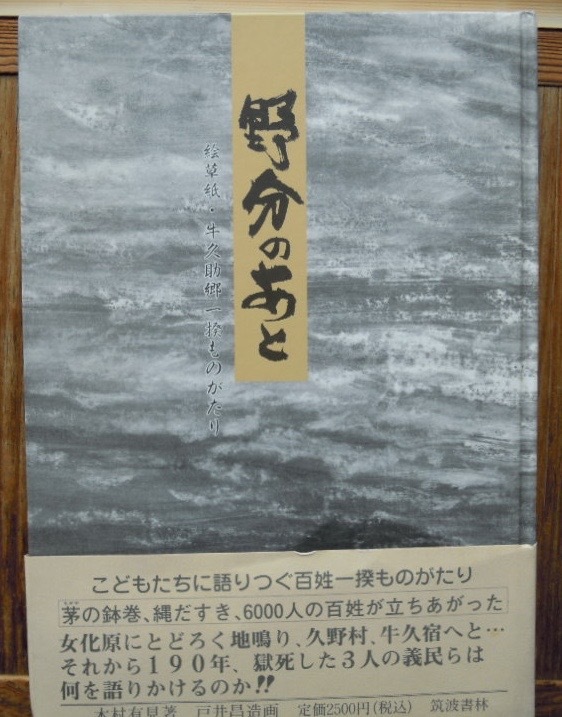 野分のあと
絵草紙・牛久助郷一揆ものがたり
こどもたちに語りつぐ百姓一揆ものがたり
茅の鉢巻、縄だすき、6000人の百姓が立ちあがった
女化原にとどろく地鳴り、久野村、牛久宿へと…
それから190年、獄死した3人の義民らは
何を語りかけるのか!!
木村有見著 戸井昌造画 定価2500円(税込) 筑波書林